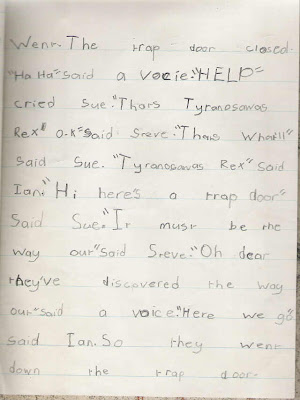 Went. The trap door closed.
"Ha Ha" said a vocie. "HELP"
cried Sue. "Thats Tyranosawas
Rex" "O.K" said Steve. "Thats What!!"
said Sue. "Tyranosawas Rex" said
Ian. "Hi here's a trap door"
said Sue. "It must be the
way out" said Steve. "Oh dear
they've discovered the way
out" said a voice. "Here we go"
said Ian. So they went
down the trap door.